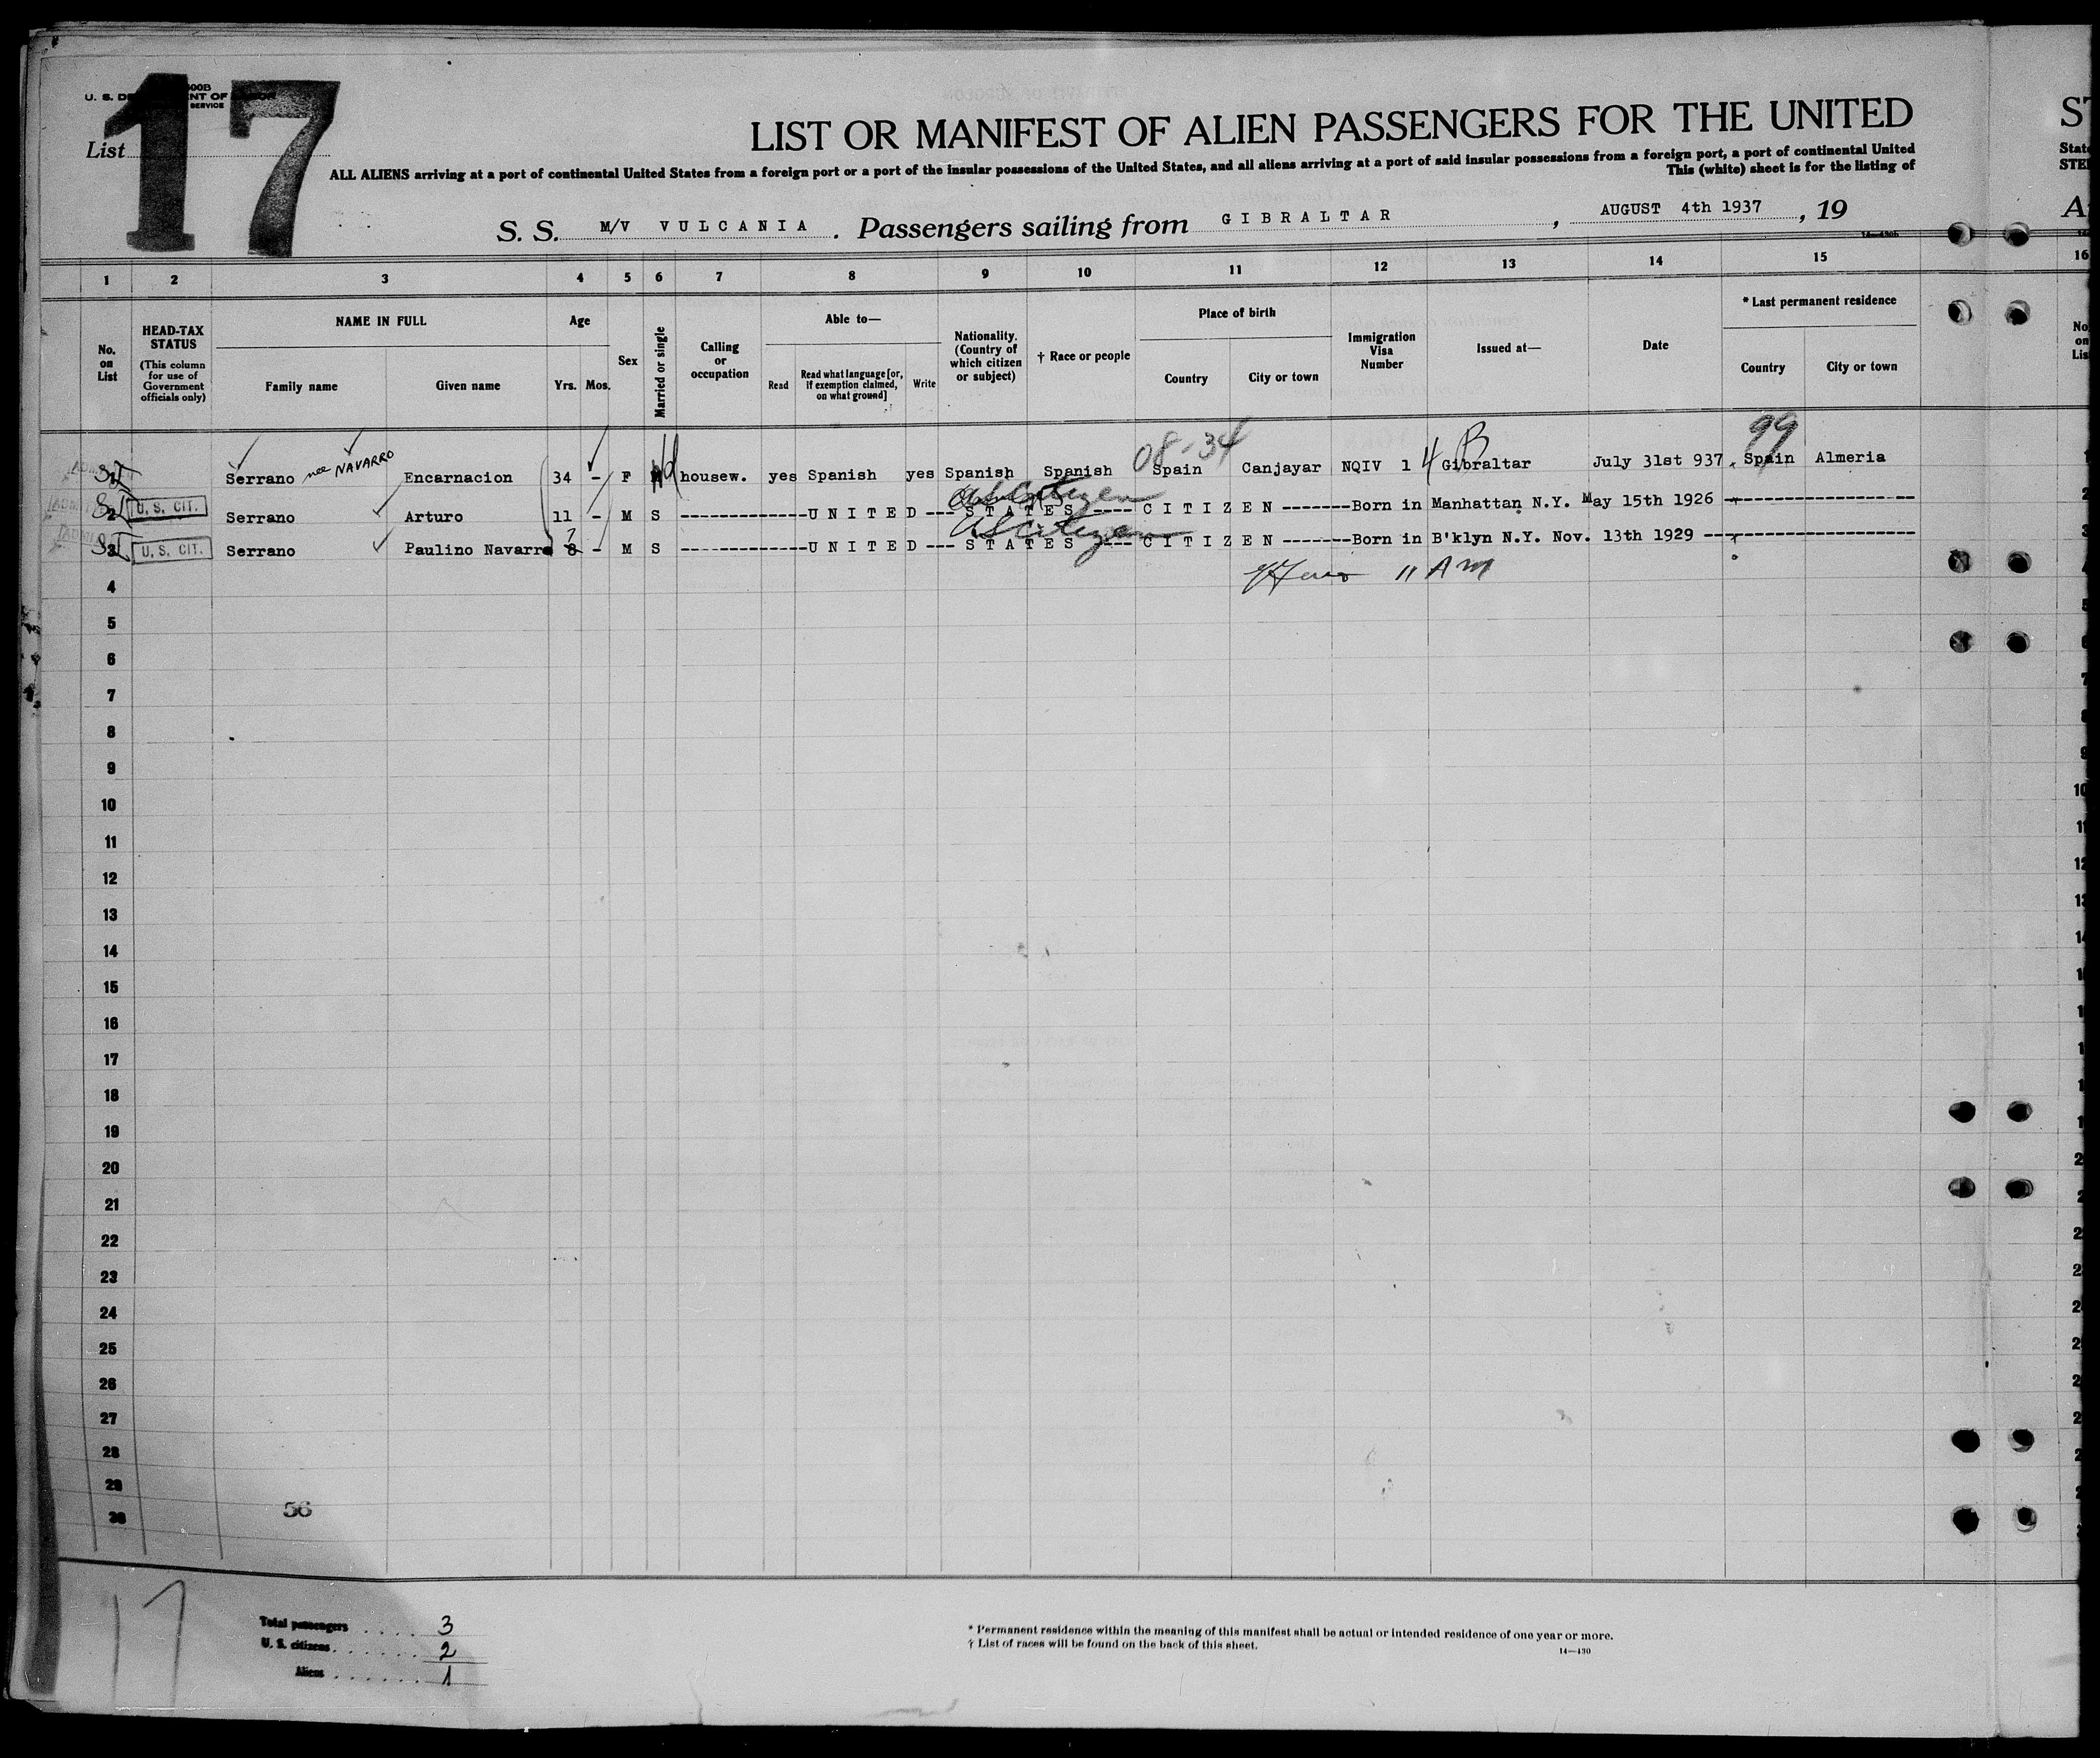 17
U. S. DE NT OF
SERVICE
List
LIST OR MANIFEST OF ALIEN PASSENGERS FOR THE UNITED
ALL ALIENS arriving at a port of continental United States from a foreign port or a port of the insular possessions of the United States, and all aliens arriving at a port of said insular possessions from a foreign port, a port of continental United
This (white) sheet is for the listing of
S. S. M/V VULCANIA. Passengers sailing from GIBRALTAR, AUGUST 4th 1937, 19
1 2 3 4 5 6 7 8 9 10 11 12 13 14 15 16
No. on List
HEAD-TAX STATUS
(This column for use of Government officials only)
NAME IN FULL
Family name Given name
Age
Yrs. Mos.
Sex
Married or single
Calling or occupation
Able to—
Read
Read what language [or, if exemption claimed, on what ground]
Write
Nationality. (Country of which citizen or subject)
† Race or people
Place of birth
Country City or town
Immigration Visa Number
Issued at—
Date
* Last permanent residence
Country City or town
08-34 B 99
Serrano nee NAVARRO Encarnacion 34 - F Wd housew. yes Spanish yes Spanish Spanish Spain Canjayar NQIV 14 Gibraltar July 31st 937. Spain Almeria
US Citizen
2 U. S. CIT. Serrano Arturo 11 - M S ------------UNITED --- STATES ---- CITIZEN -------Born in Manhattan N.Y. May 15th 1926 ------------------
US Citizen
7
3 U. S. CIT. Serrano Paulino Navarro 8 - M S ------------UNITED --- STATES ---- CITIZEN -------Born in B'klyn N.Y. Nov. 13th 1929 ------------------
4 11 AM
5
6
7
8
9
10
11
12
13
14
15
16
17
18
19
20
21
22
23
24
25
26
27
28
29
30
56
17
Total passengers . . . . 3
U. S. citizens . . . . . . 2
Aliens . . . . . . . 1
* Permanent residence within the meaning of this manifest shall be actual or intended residence of one year or more.
† List of races will be found on the back of this sheet.
14—430